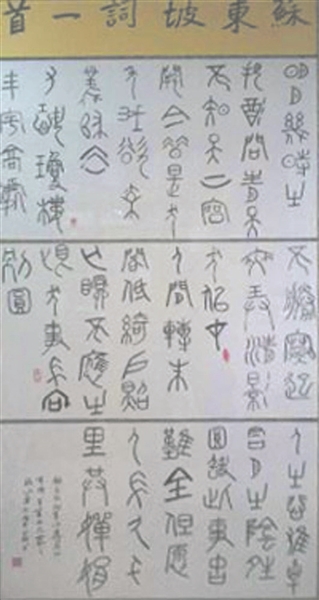 蘇東坡詞一首
明月幾時有
把酒問青天
不知天上宮
闕今夕是何
年我欲乘
風歸去
又恐瓊樓
玉宇高處
不勝寒起
舞弄清影
何似
人間轉朱
閣低綺戶照
無眠不應有
恨何事長向
別圓
人有悲
月有陰晴
圓缺此事古
難全但願
人長久千
里共嬋娟